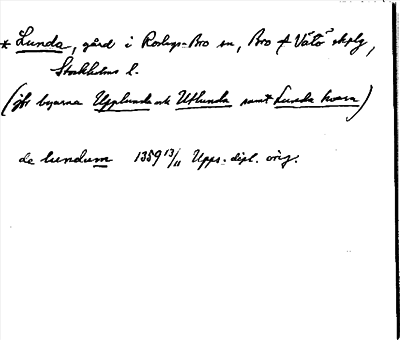 * Lunda, gård i Roslags-Bro sn, Bro o Vätö skplg,
Stockholms l.
(jfr byarna Upplunda och Utlunda samt Lunda kvarn)
de lundum 1359 13/11 Upps. dipl. orig.